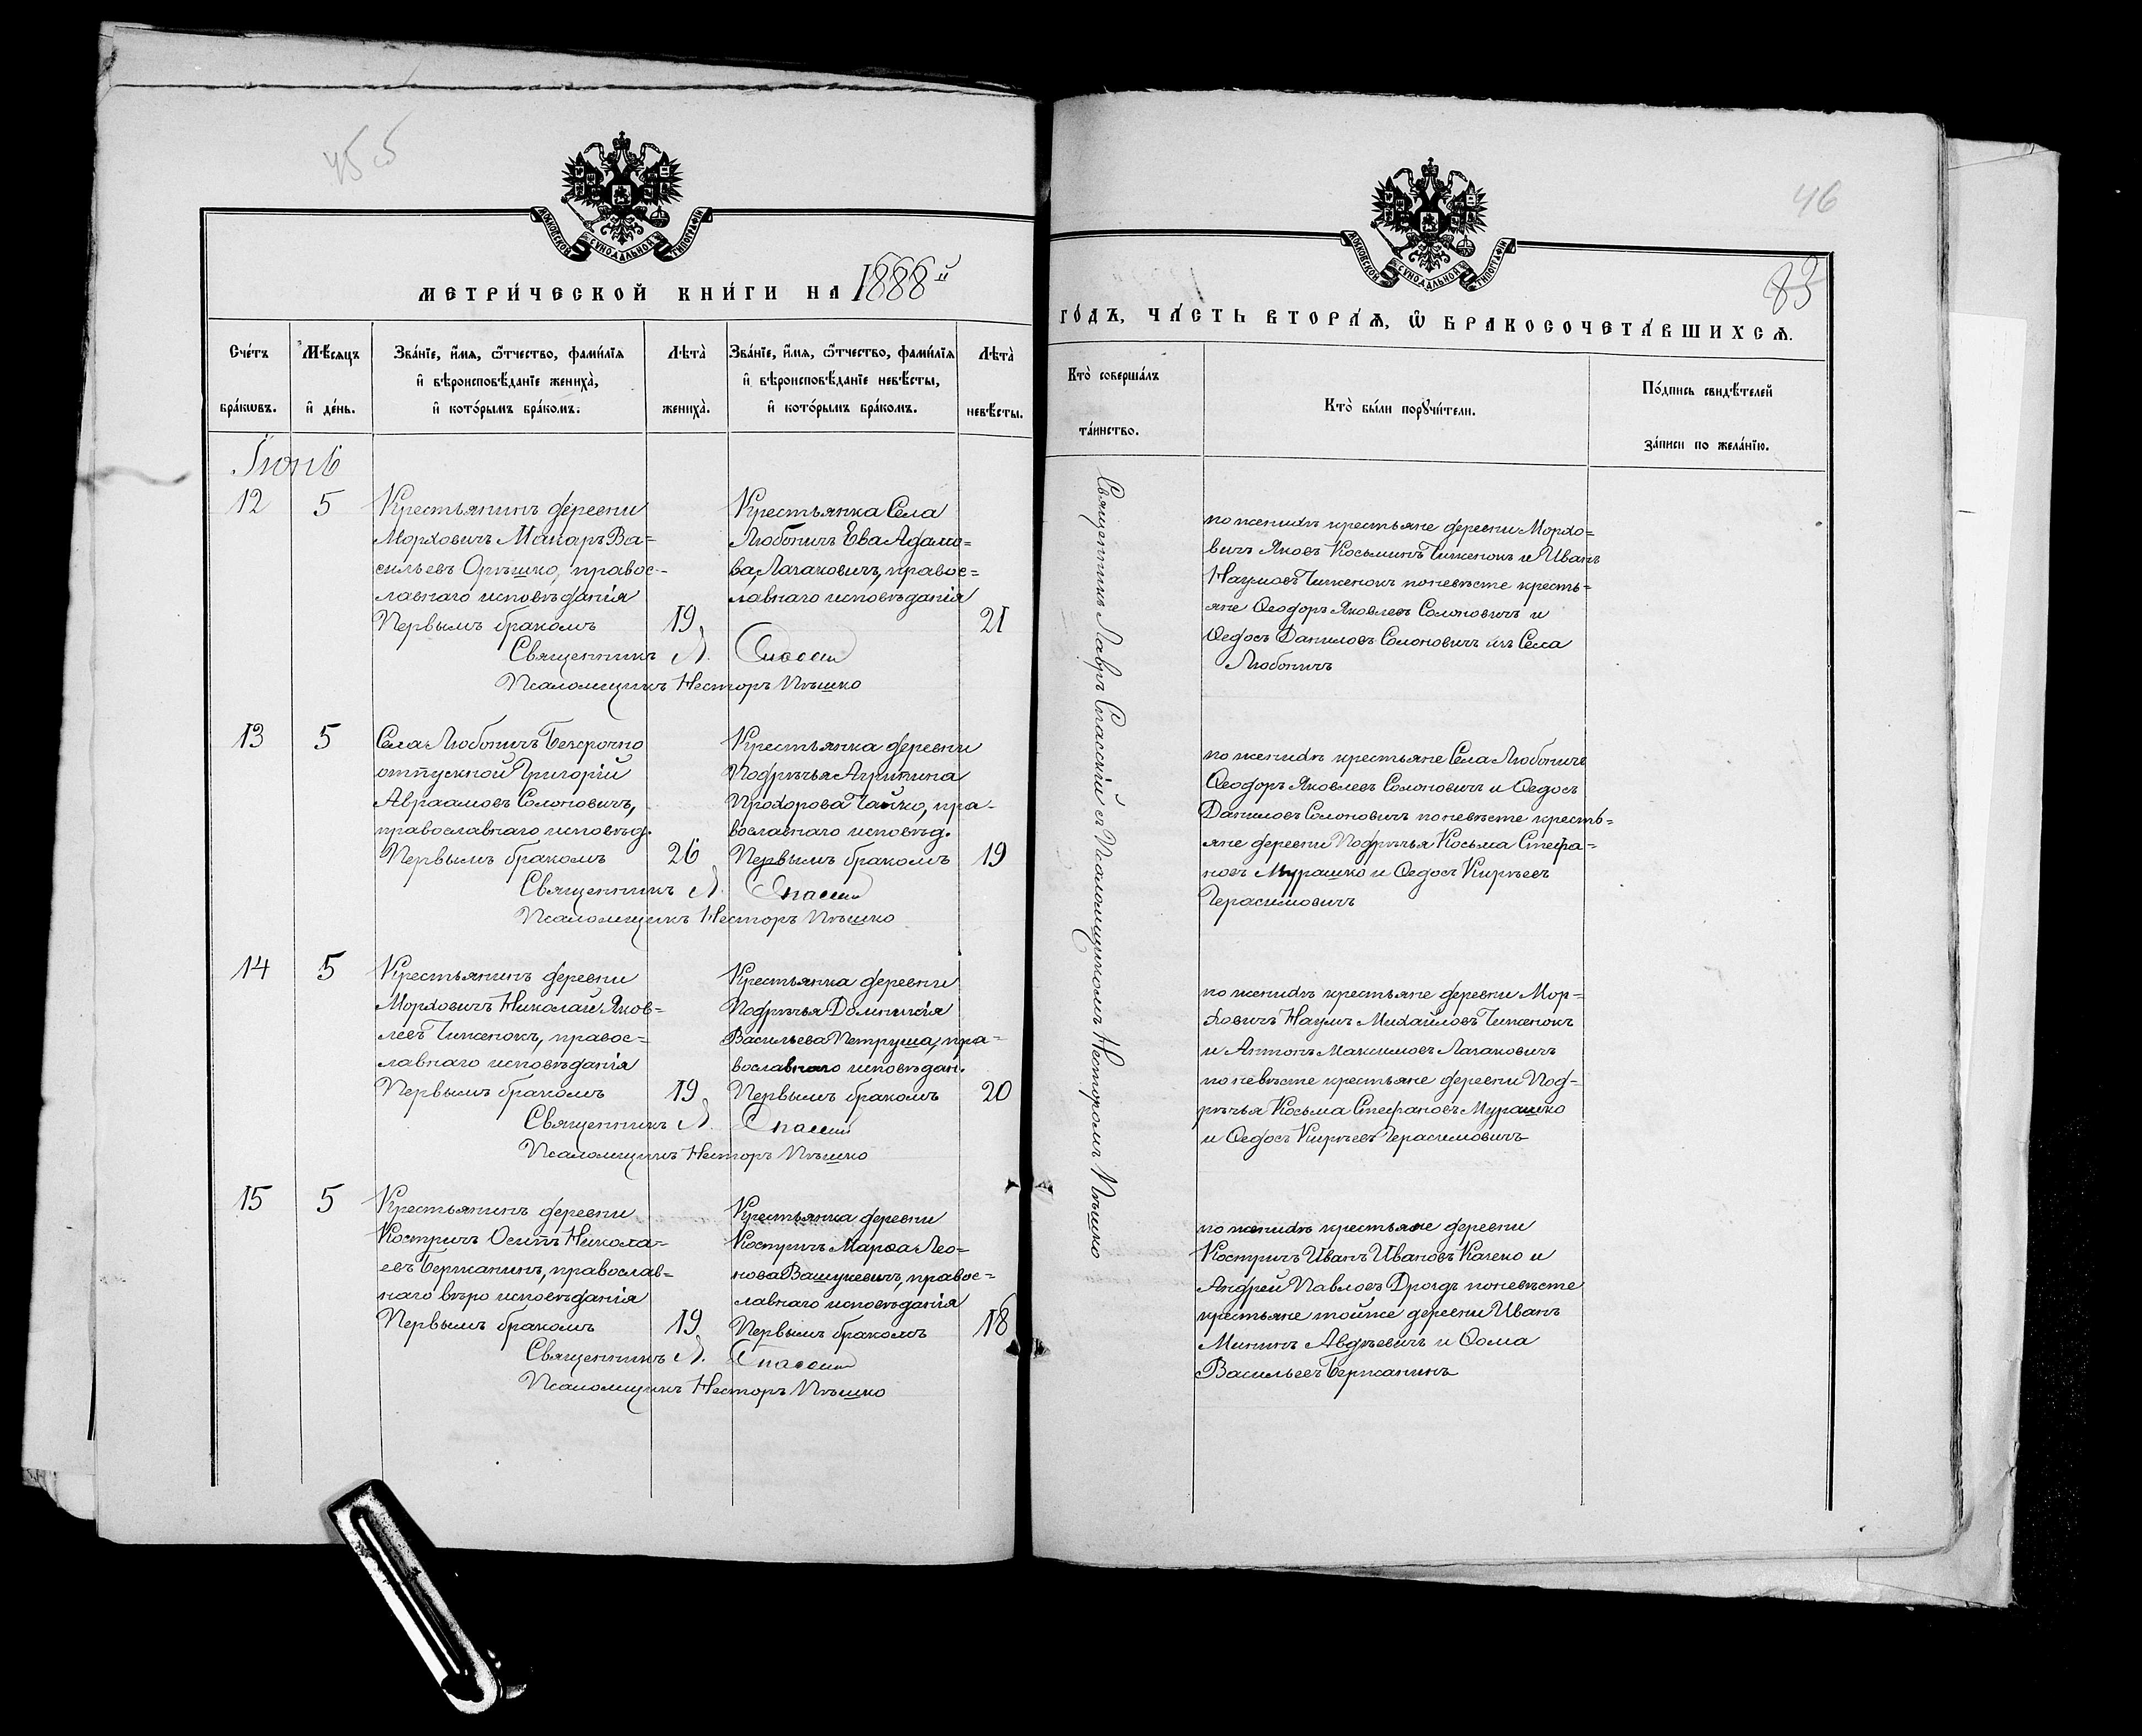 455
МОСКОВСКОЙ СѴНОДАЛЬНОЙ ТИПОГРАФІИ
МЕТРИ́ЧЕСКОЙ КНИ́ГИ НА 1888й
Сче́тъ бра́кѡвъ.
Мѣ́сяцъ и҆ де́нь.
Зва́нїе, и҆́мя, ѻ҆́тчество, фами́лїя
и҆ вѣроисповѣ́данїе жениха̀,
и҆ кото́рымъ бра́комъ.
Лѣта̀ жениха̀.
Зва́нїе, и҆́мя, ѻ҆́тчество, фами́лїя
и҆ вѣроисповѣ́данїе невѣ́сты,
и҆ кото́рымъ бра́комъ.
Лѣта̀ невѣ́сты.
Іюнь
12 5
Крестьянинъ деревни
Морховичъ Макаръ Ва=
сильевъ Орѣшко, правос-
лавнаго исповѣданія
Первымъ бракомъ 19
Крестьянка Села
Любоничъ Ева Адамо=
ва Лагаковичъ, правос=
лавнаго исповѣданія
21
Священникъ Л. Спасскій
Псаломщикъ Несторъ Пѣшко
13 5
Села Любоничъ Безсрочно
отпускной Григорій
Авраамовъ Солоновичъ,
православнаго исповѣд.
Первымъ бракомъ 26
Крестьянка деревни
Подрѣчья Агрипина
Прохорова Чайко, пра-
вославнаго исповѣд.
Первымъ бракомъ 19
Священникъ Л. Спасскій
Псаломщикъ Несторъ Пѣшко
14 5
Крестьянинъ деревни
Морховичъ Николай Яков=
левъ Чиженокъ, правос=
лавнаго исповѣданія
Первымъ бракомъ 19
Крестьянка деревни
Подрѣчья Домникія
Васильева Петруша, пра-
вославнаго исповѣдан.
Первымъ бракомъ 20
Священникъ Л. Спасскій
Псаломщикъ Несторъ Пѣшко
15 5
Крестьянинъ деревни
Костричъ Осипъ Никола=
евъ Бержанинъ, православ=
наго вѣроисповѣданія
Первымъ бракомъ 19
Крестьянка деревни
Костричъ Марѳа Лео=
нова Вашукевичъ, правос=
лавнаго исповѣданія
Первымъ бракомъ 18
Священникъ Л. Спасскій
Псаломщикъ Несторъ Пѣшко
46
83
МОСКОВСКОЙ СѴНОДАЛЬНОЙ ТИПОГРАФІИ
ГО́ДЪ, ЧА́СТЬ ВТОРА́Я, Ѡ҆ БРАКОСОЧЕТА́ВШИХСЯ.
Кто̀ соверша́лъ
та́инство.
Кто̀ бы́ли порꙋчи́тели.
По́дпись свидѣ́телей
за́писи по жела́нїю.
Священникъ Лавръ Спасскій съ Псаломщикомъ Несторомъ Пѣшко
по женихѣ крестьяне деревни Морхо=
вичъ Яковъ Косьминъ Чиженокъ и Иванъ
Наумовъ Чиженокъ по невѣсте кресть=
яне Ѳеодоръ Яковлевъ Солоновичъ и
Ѳедосъ Даниловъ Солоновичъ изъ Села
Любоничъ
по женихѣ крестьяне Села Любоничъ
Ѳеодоръ Яковлевъ Солоновичъ и Ѳедосъ
Даниловъ Солоновичъ по невѣсте кресть=
яне деревни Подрѣчья Косьма Стефа=
новъ Мурашко и Ѳедосъ Кирѣевъ
Герасимовичъ
по женихѣ крестьяне деревни Мор=
ховичъ Наумъ Михайловъ Чиженокъ
и Антонъ Максимовъ Лагаковичъ
по невѣсте крестьяне деревни Под=
рѣчья Косьма Стефановъ Мурашко
и Ѳедосъ Кирѣевъ Герасимовичъ
по женихѣ крестьяне деревни
Костричъ Иванъ Ивановъ Калеко и
Андрей Павловъ Дроздъ по невѣсте
крестьяне тойже деревни Иванъ
Мининъ Авдѣевичъ и Ѳома
Васильевъ Бержанинъ